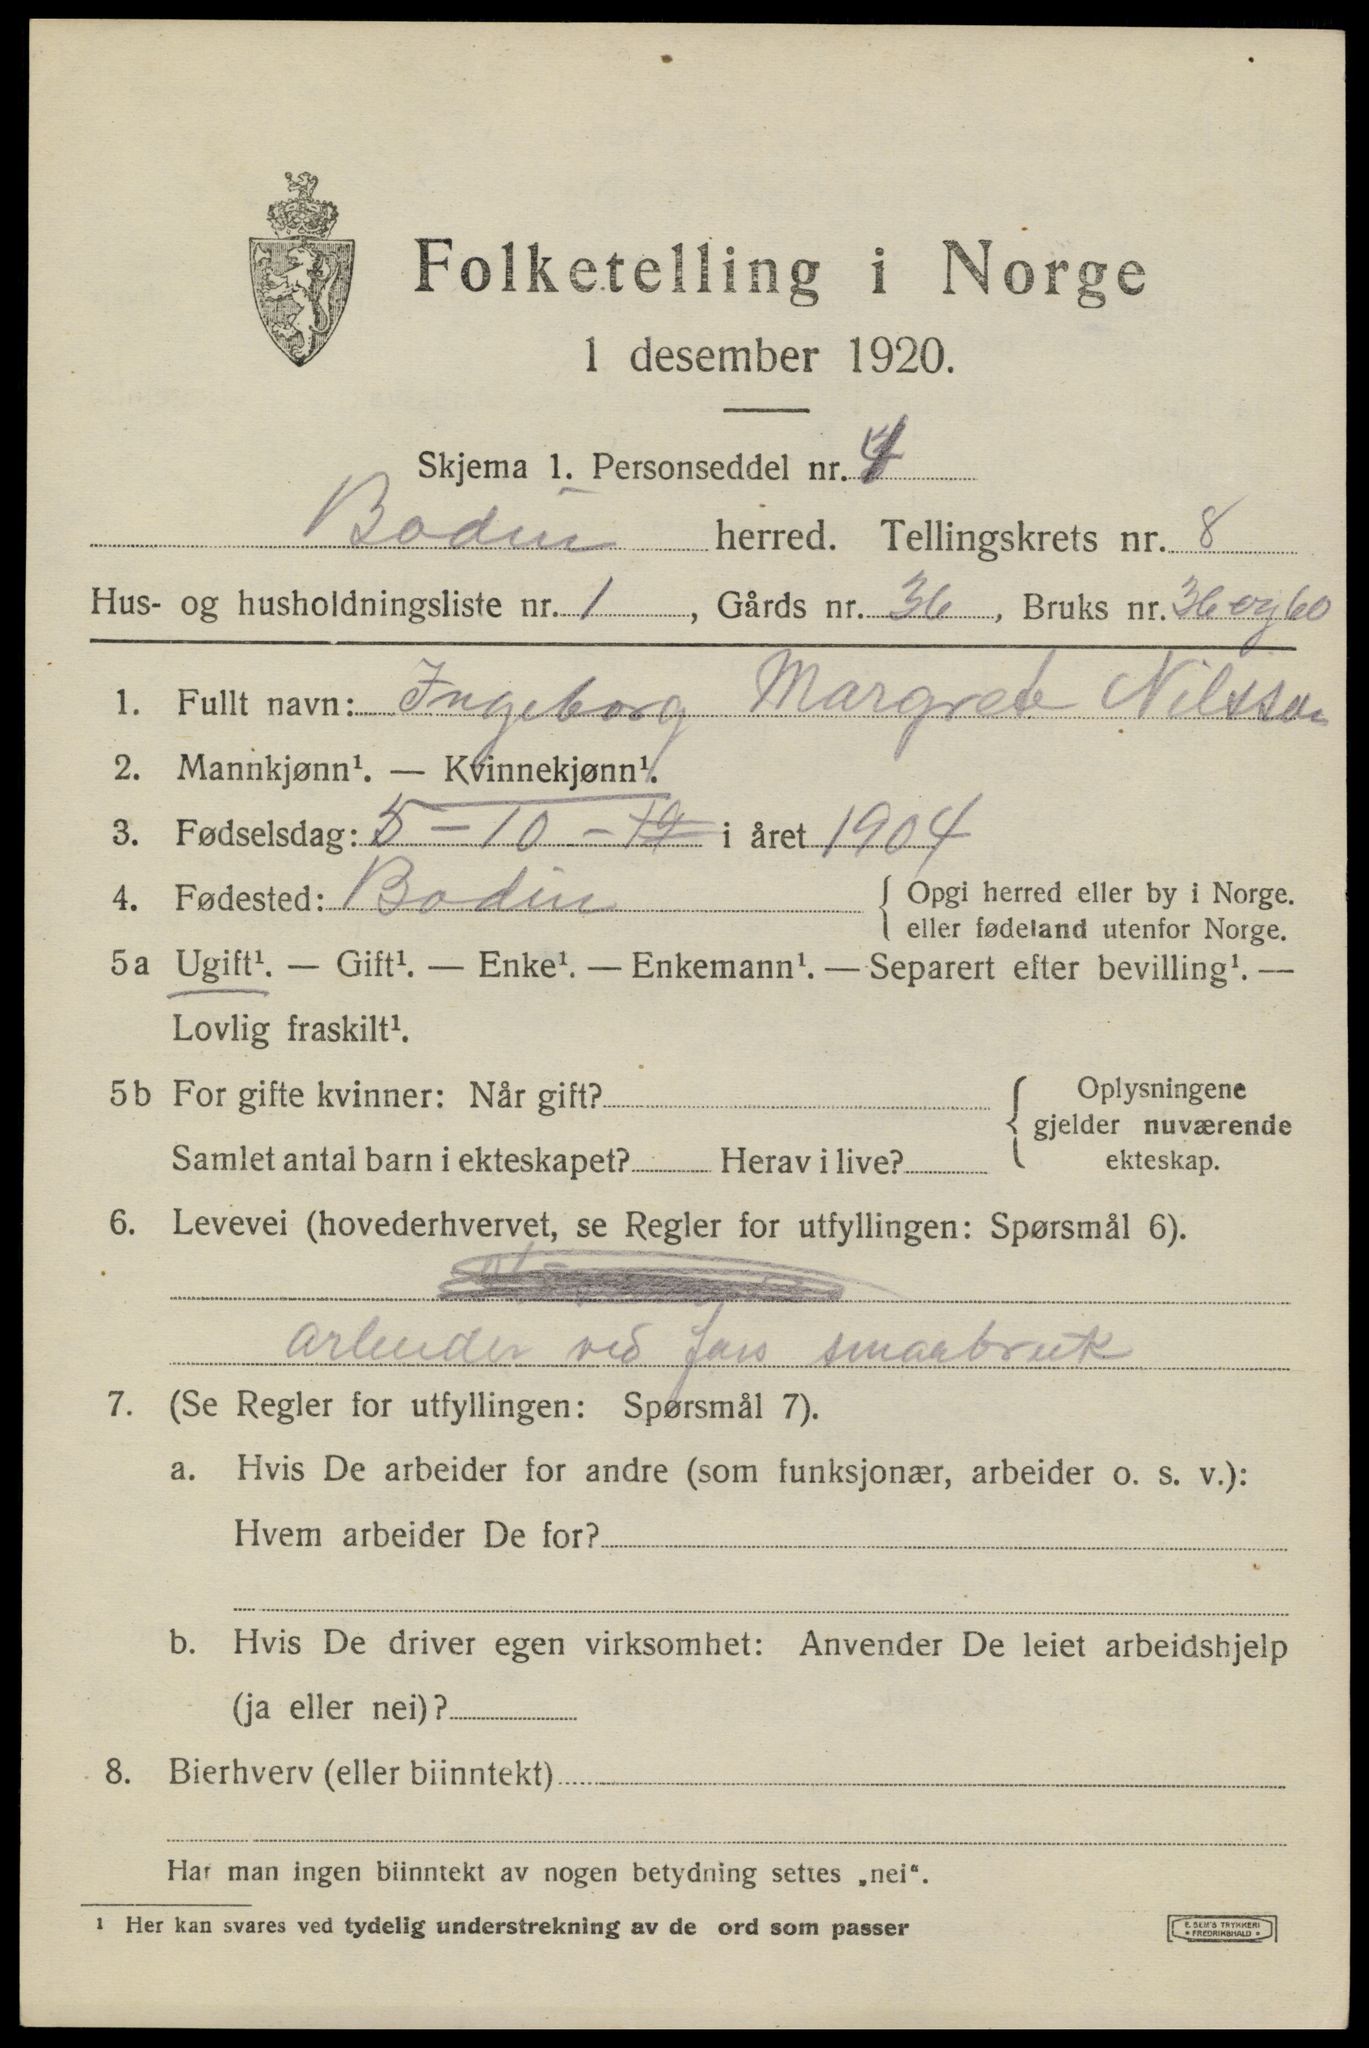 Folketelling i Norge
1 desember 1920.
Skjema 1. Personseddel nr. 4
Bodin herred. Tellingskrets nr. 8
Hus- og husholdningsliste nr. 1, Gårds nr. 36, Bruks nr. 36 og 60
1. Fullt navn: Ingeborg Margrete Nilssen
2. Mannkjønn¹. — Kvinnekjønn¹.
3. Fødselsdag: 5 - 10 - 19 i året 1904
4. Fødested: Bodin { Opgi herred eller by i Norge.
eller fødeland utenfor Norge.
5a Ugift¹. — Gift¹. — Enke¹. — Enkemann¹. — Separert efter bevilling¹. —
Lovlig fraskilt¹.
5b For gifte kvinner: Når gift? { Oplysningene
gjelder nuværende
Samlet antal barn i ekteskapet? Herav i live? ekteskap.
6. Levevei (hovederhvervet, se Regler for utfyllingen: Spørsmål 6).
arbeider ved fars smaabruk
7. (Se Regler for utfyllingen: Spørsmål 7).
a. Hvis De arbeider for andre (som funksjonær, arbeider o. s. v.):
Hvem arbeider De for?
b. Hvis De driver egen virksomhet: Anvender De leiet arbeidshjelp
(ja eller nei)?
8. Bierhverv (eller biinntekt)
Har man ingen biinntekt av nogen betydning settes „nei“.
¹ Her kan svares ved tydelig understrekning av de ord som passer
E. SEM'S TRYKKERI
* FREDRIKSHALD *